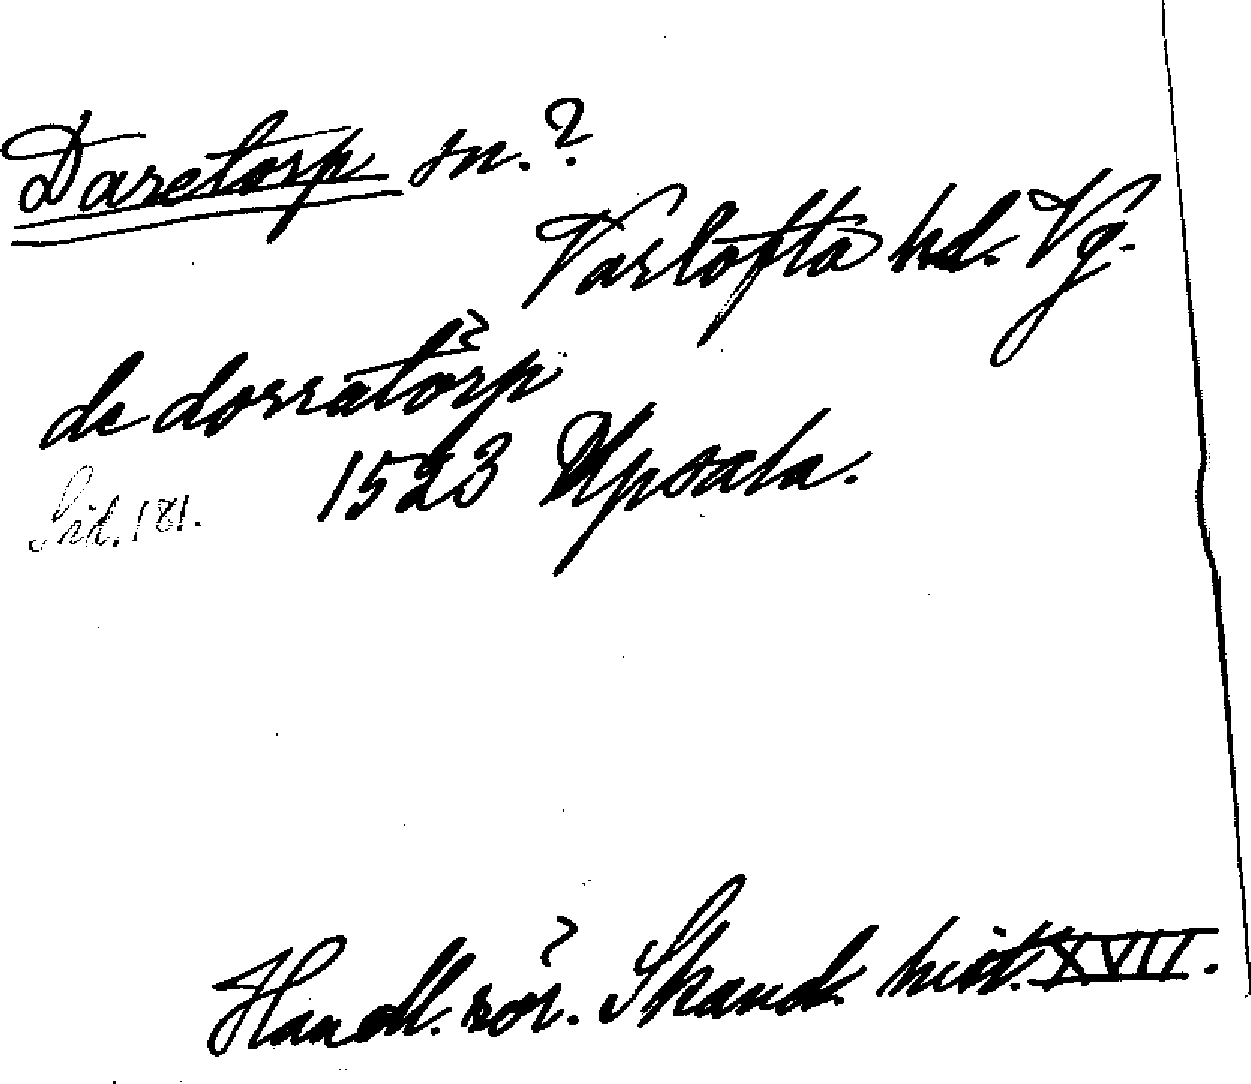 Daretorp sn.?
Vartofta hd. Vg.
de dorratorp
1523 Upsala.
Sid. 181.
Handl. rör. Skand. hist. XVII.